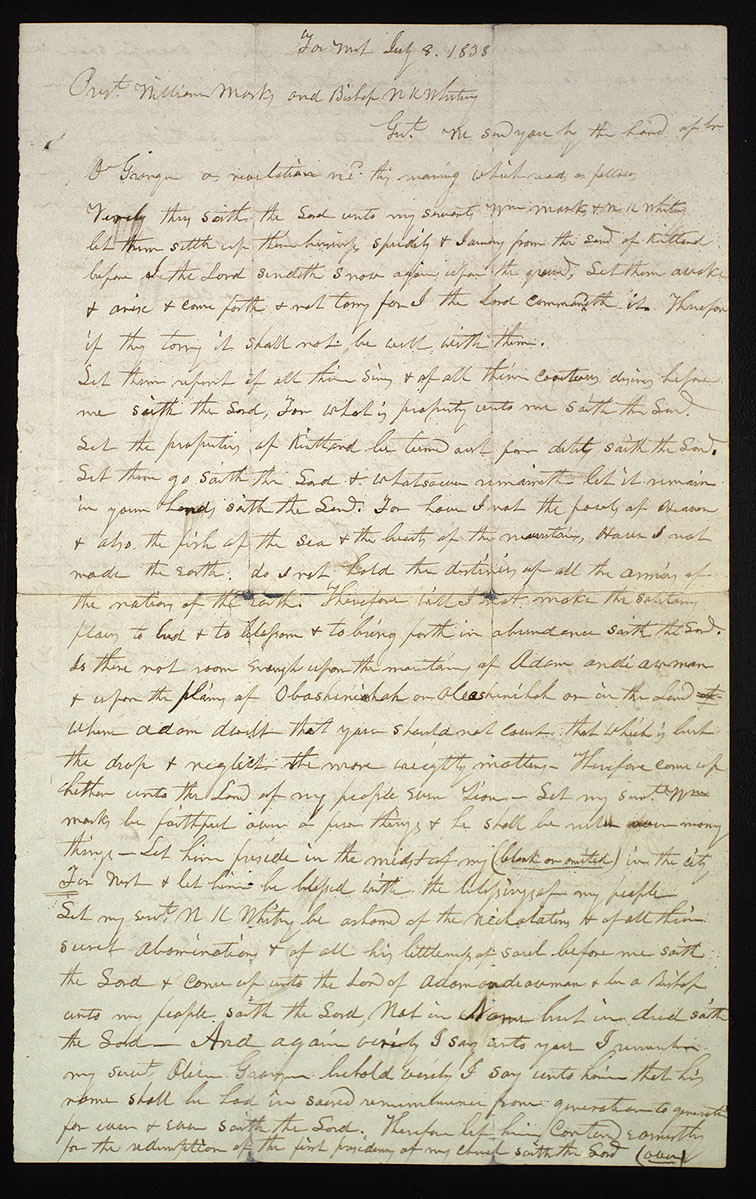 Far West July 8. 1838
Prest. William Marks and Bishop N K Whitney
Gent. We send you by the hand of br
O Granger a revelation recd. this morning which reads as follows
Verily thus saith the Lord unto my servants Wm Marks & N K Whitney
let them settle up their business speedily & Journey from the land of Kirtland
before I the Lord sendeth snow again upon the ground, Let them awake
& arise & come forth & not tarry for I the Lord commandeth it. Therefore
if they tarry it shall not be well with them.
Let them repent of all their sins & of all their coviteous desires before
me saith the Lord, For what is property unto me saith the Lord.
Let the properties of Kirtland be turned out for debts saith the Lord.
Let them go saith the Lord & whatsoever remaineth let it remain
in your hands saith the Lord. For have I not the fowls of Heaven
& also the fish of the sea & the beasts of the mountains, Have I not
made the earth. do I not hold the distinies of all the armies of
the nations of the Earth. Therefore will I not make the solitary
places to bud & to blossom & to bring forth in abundance saith the Lord.
Is there not room enough upon the mountains of Adam ondi awman
& upon the plains of Obashinihah or Oleashinihah or in the Land
where adam dwelt that you should not covet that which is but
the drop & neglect the more weighty matters— Therefore come up
hither unto the Land of my people even Zion— Let my servt. Wm
Marks be faithful over a few things & he shall be ruler over many
things— Let him preside in the midst of my (blank or omited) in the city
Far West & let him be blessed with the blessings of my people
Let my servt. N K Whitney be ashamed of the Nicholatins & of all their
secret abominations & of all his littleness of soul before me saith
the Lord & come up unto the Land of Adamondiawman & be a Bishop
unto my people saith the Lord, Not in Name but in deed saith
the Lord— And again verily I say unto you I remember
my servt. Oliver Granger behold verily I say unto him that his
name shall be had in sacred rememberance from generation to generation
for ever & ever saith the Lord. Therefore let him Contend earnestly
for the redemption of the first presidency of my church saith the Lord (over)